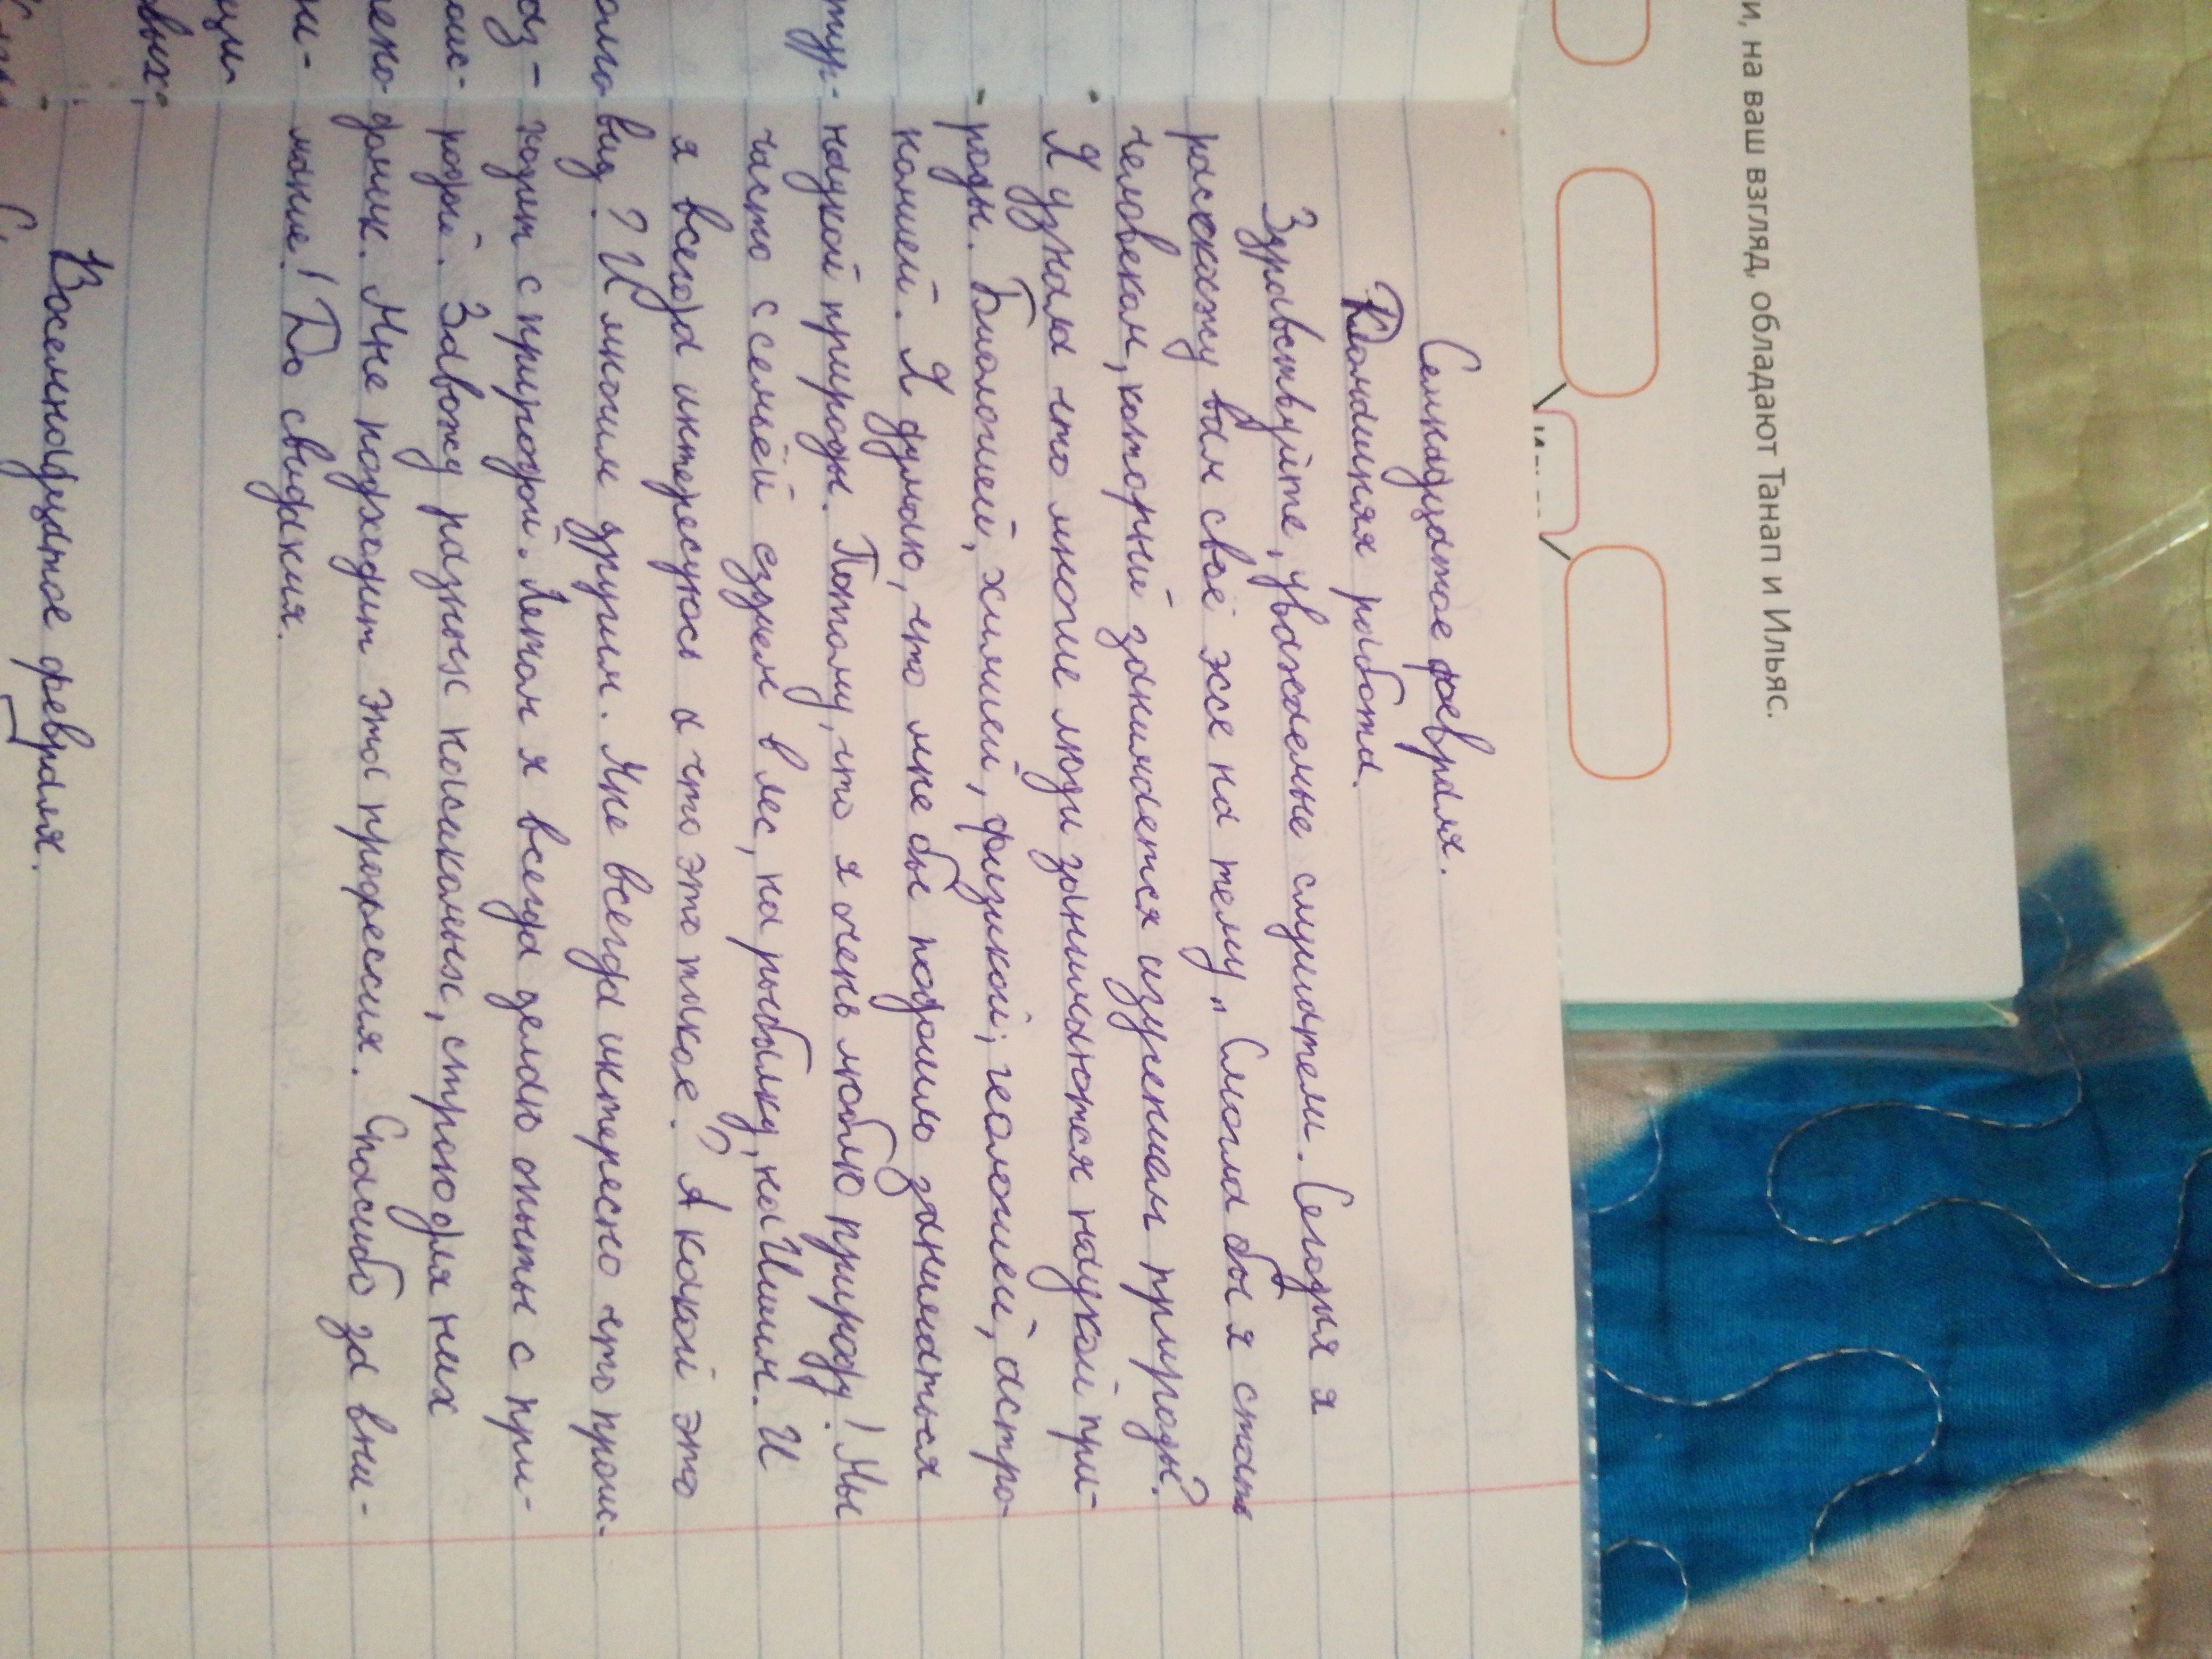 и, на ваш взгляд, обладают Танап и Ильяс.
Семнадцатое февраля.
Домашняя работа.
Здравствуйте, уважаемые слушатели. Сегодня я
расскажу вам своё эссе на тему „ Смогла бы я стать
человеком, который занимается изучением природы?
Я узнала что многие люди занимаются наукой при-
роды. Биологией, химией, физикой, геологией, астро-
номией. Я думаю, что мне бы подошло заниматься
наукой природы. Потому, что я очень люблю природу! Мы
часто с семьёй ездием в лес, на рыбалку, на Ишим. И
я всегда интересуюсь а что это такое? А какой это
вид? И многим другим. Мне всегда интересно что проис-
ходит с природой. Летом я всегда делаю опыты с при-
родой. Завожу разных насикомых, строю для них
домик. Мне подходит эта профессия. Спасибо за вни-
мание! До свидания.
Восемнадцатое февраля.